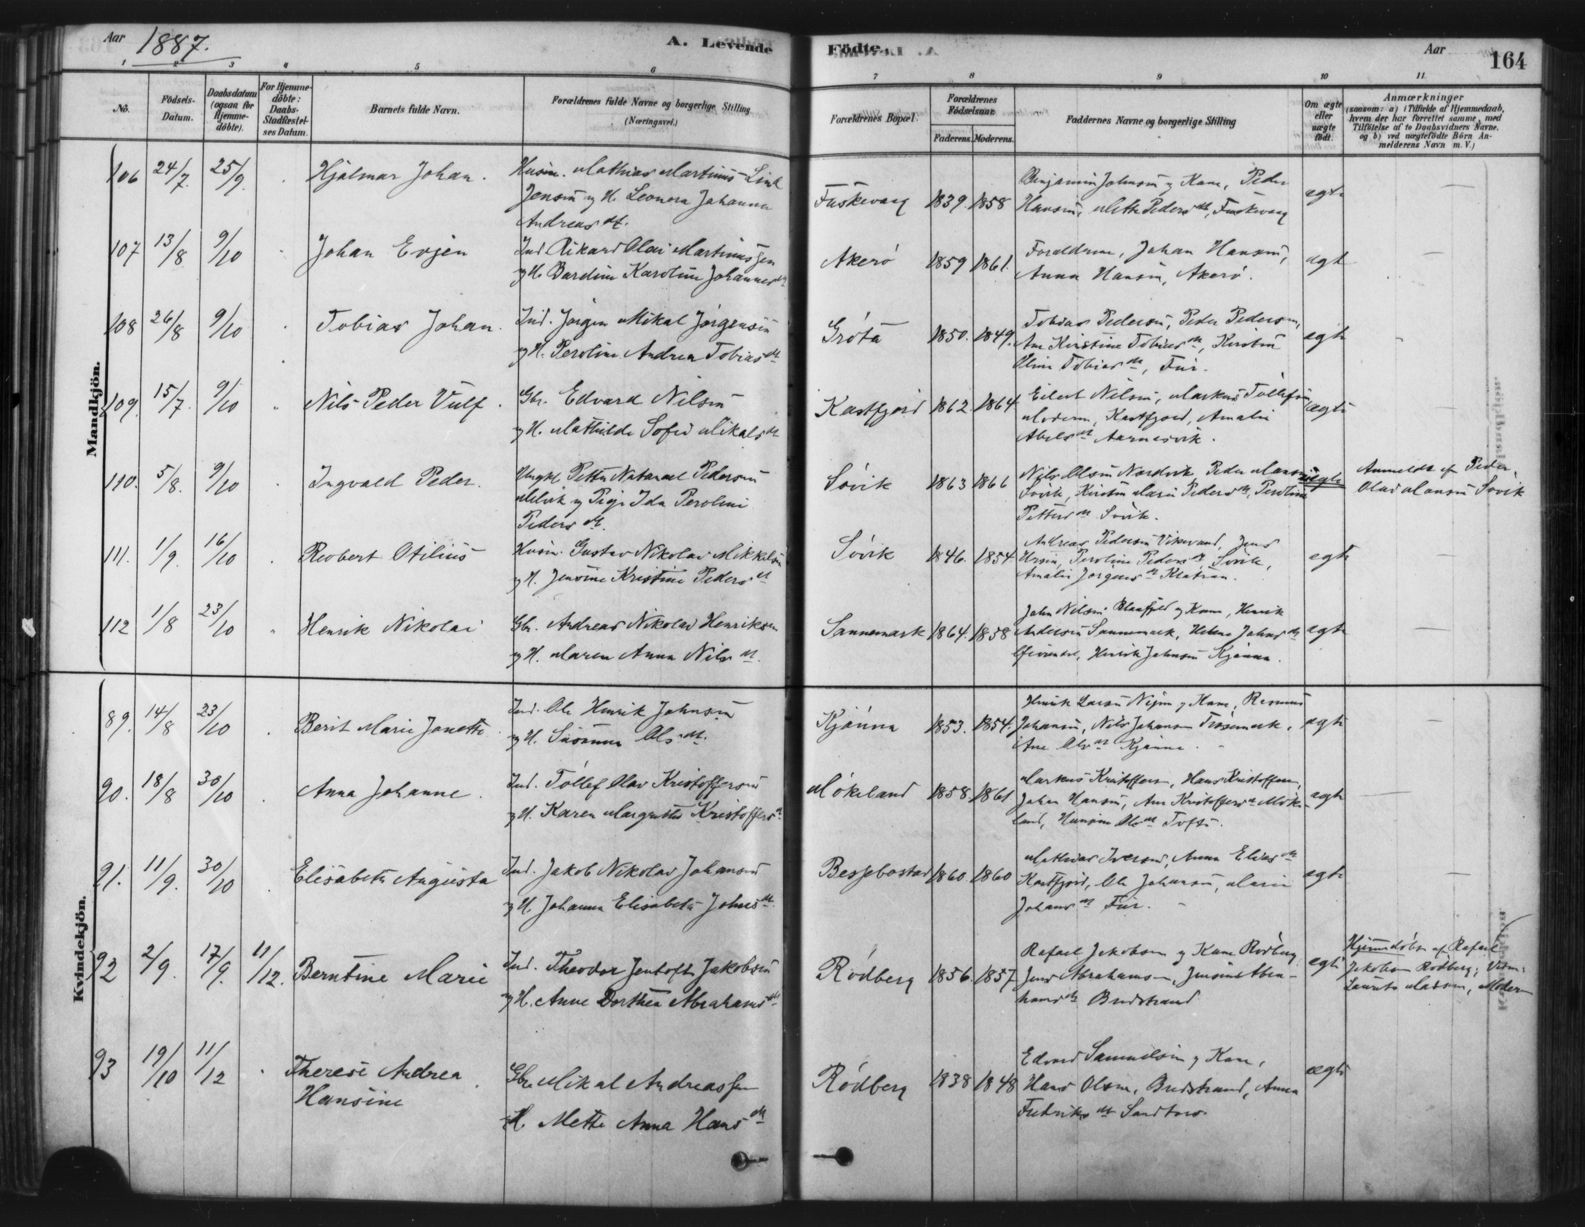 Aar 1887. A. Levende
Fødte. Aar 164
1 2 3 4 5 6 7 8 9 10 11
No. Fødsels-Datum. Daabsdatum (ogsaa for Hjemmedøbte). For Hjemmedøbte: Daabs-Stadfæstelses Datum. Barnets fulde Navn. Forældrenes fulde Navne og borgerlige Stilling (Næringsvei.) Forældrenes Bopæl. Forældrenes Fødselsaar. Faderens. Moderens. Faddernes Navne og borgerlige Stilling Om ægte eller uægte født. Anmærkninger
(saasom: a) i Tilfælde af Hjemmedaab,
hvem der har forrettet samme, med
Tilføielse af to Daabsvidners Navne,
og b) ved uægtefødte Børn Anmelderens Navn m. V.)
Mandkjön.
106 24/7. 25/9. Hjalmar Johan. Husm. Mathias Martinus
Jensen og H. Leonora Johanna
Andreasdt. Fuskevaag 1839 1858 Benjamin Johnsen og Kone, Peder
Hansen, Mette Pedersdt, Fuskevaag ægte —
107 13/8 9/10 Johan Evjen Ind. Rikard Olai Martinussen
og H. Bardine Karoline Johannesdt Akerø 1859 1861. Forældrene, Johan Hansen,
Anna Hansen, Akerø. ægte —
108 26/8 9/10 Tobias Johan. Ind. Jørgen Mikal Jørgensen
og H. Peroline Andrea Tobiasdt Grøta 1850. 1849. Tobias Pedersen, Peder Pedersen,
Ane Kirstine Tobiasdt, Kirstine
Oline Tobiasdt, Fur. ægte -
109. 15/7. 9/10 Nils Peder Vulf. Gbr. Edvard Nilsen
og H. Mathilde Sofie Mikalsdt Kastfjord 1862 1864 Eilert Nilsen, Markus Tollefsen
Moderen, Kastfjord, Amalie
Abelsdt Aarnesvik. ægte
110. 5/8. 9/10 Ingvald Peder. Ungkl Petter Natanael Pedersen
Melvik og Pige Ida Peroline
Pedersdt. Søvik 1863 1866 Nils Olsen Nordvik, Peder Monsen
Søvik, Kirsten Marie Pedersdt, Peroline
Pettersdt Søvik. uægte Anmeldt af Peder
Olav Monsen Søvik
111. 1/9. 16/10 Robert Otilius Husm. Gustav Nikolai Mikkelsen
og H. Jensine Kristine Pedersdt Søvik 1846. 1854 Andreas Pedersen Vikerand, Jens
Peroline Pedersdt Søvik,
Amalie Jørgensdt Klatran. ægte —
112 1/8 23/10 Henrik Nikolai Gbr. Andreas Nikolai Henriksen
og H. Maren Anna Nilsdt. Sannemark 1864. 1858 John Nilsen Blaafjeld og Kone, Henrik
Andersen Sannemark, Helene Johnsdt
Henrik Johnsen Kjønna. ægte —
Kvindekjön.
89. 14/8 23/10 Berit Marie Janette Ind. Ole Henrik Johnsen
og H. Susanna Olsdt. Kjønna 1853. 1854. Henrik Larsen og Kone, Rasmus
Johansen, Nils Johansen
Ane Olsdt Kjønna. ægte —
90. 18/8 30/10 Anna Johanne. Ind. Tollef Olav Kristoffersen
og H. Karen Margrethe Kristoffersdt Møkeland 1858 1861 Markus Kristoffersen, Hans Kristoffersen,
Johan Hansen, Ane Kristoffersdt Møkeland,
Hansine Olsdt Tofte. ægte —
91. 11/9. 30/10 Elisabeth Augusta Ind. Jakob Nikolai Johansen
og H. Johanna Elisabeth Johnsdt Bessebostad 1860 1860 Mathias Iversen, Anna Eliasdt
Kastfjord, Ole Johansen, Marie
Johansdt Fur. ægte —
92 2/9. 17/9. 11/12. Berntine Marie Ind. Theodor Jentoft Jakobsen
og H. Anne Dorthea Abrahamsdt Rødberg 1856. 1857 Rafael Jakobsen og Kone Rødberg,
Jens Abrahamsen, Jensine Abrahamsdt
Bredstrand ægte Hjemmedøbt af Rafael
Jakobsen Rødberg; Vidn:
Laurits Madsen, Moderen
93 19/10 11/12 Therese Andrea
Hansine Gbr Mikal Andreassen
H. Mette Anna Hansdt Rødberg 1838 1848 Edvard Samuelsen og Kone,
Hans Olsen, Bredstrand, Anna
Fredriksdt Sandtorv ægte